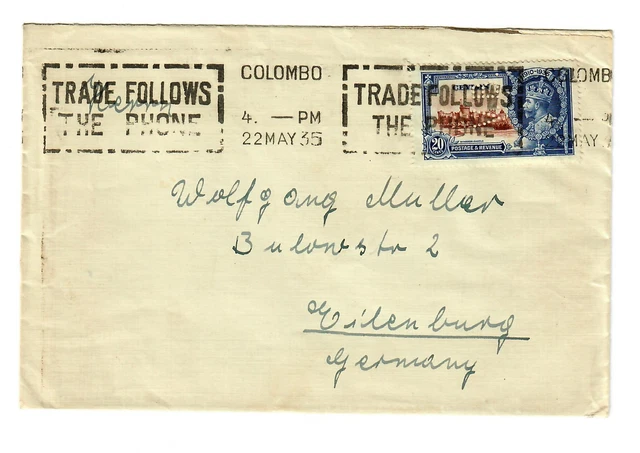 TRADE FOLLOWS
THE PHONE
COLOMBO
4. — PM
22 MAY 35
TRADE FOLLOWS
THE PHONE
COLOMB
MAY
CEYLON
20
POSTAGE & REVENUE
Herrn
Wolfgang Muller
Bulowstr 2
Eilenburg
Germany